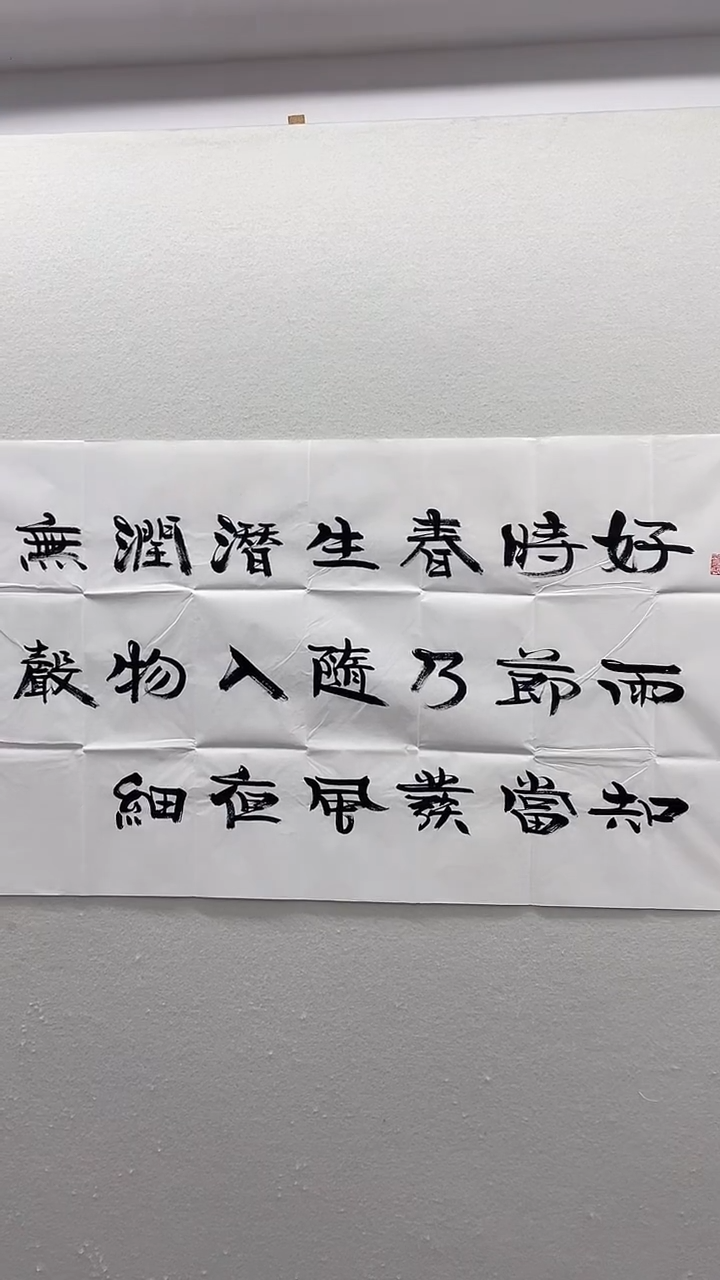 好雨知
時節當
春乃發
生隨風
潛入夜
潤物細
無聲